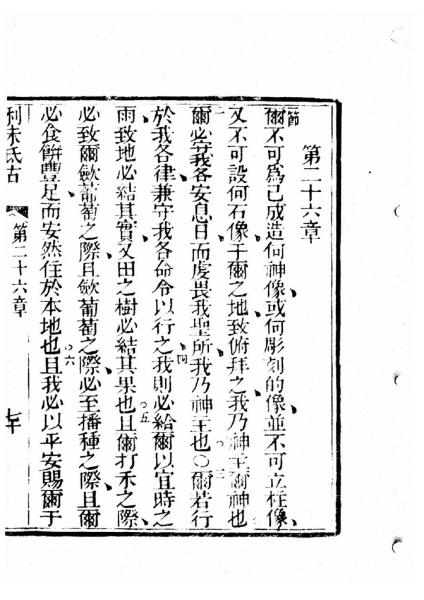 第二十六章
節爾不可為己成造何神像或何彫刻的像並不可立柱像、
又不可設何石像于爾之地致俯拜之、我乃神主爾神也
爾必守我各安息日而虔畏我聖所、我乃神主也○爾若行
於我各律、兼守我各命令以行之、我則必給爾以宜時之
雨、致地必結其實、又田之樹必結其果也且爾打禾之際、
必致爾斂葡萄之際、且斂葡萄之際、必至播種之際、且爾
必食餅豐足而安然住於本地也且我必以平安賜爾于
利未氏古
第二十六章
七十
二
三
四
五
六